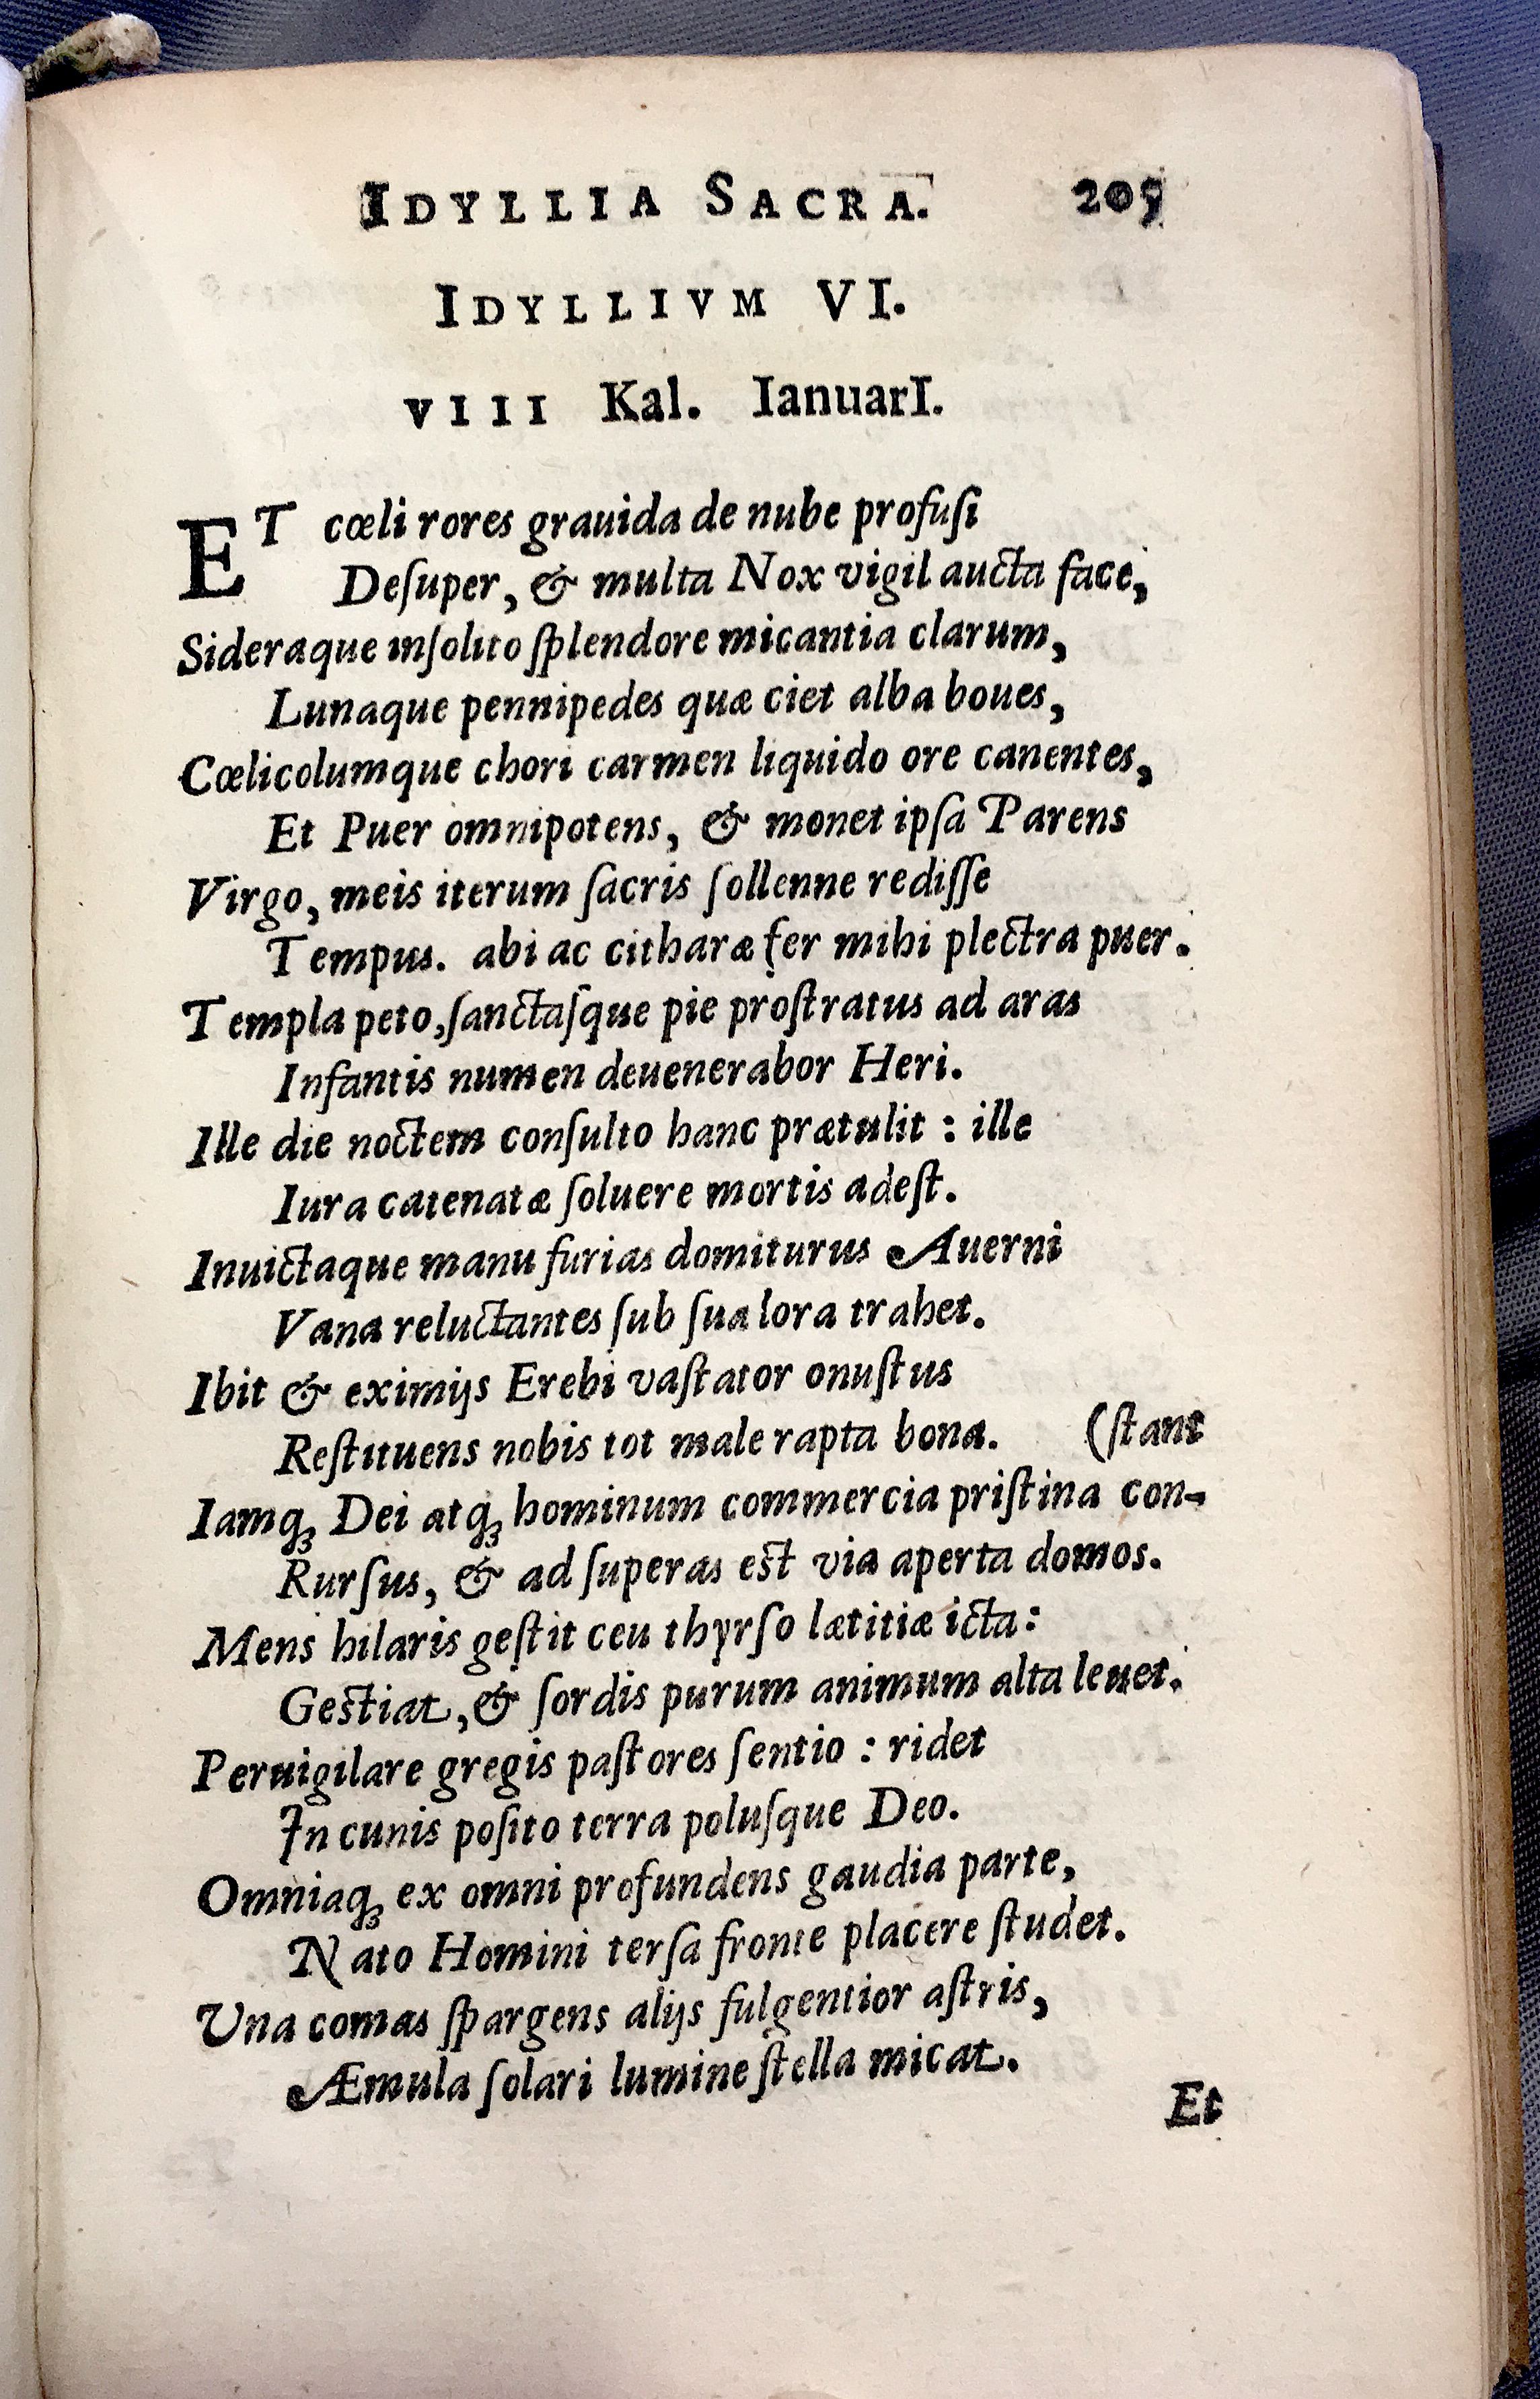 IDYLLIA SACRA. 205
IDYLLIVM VI.
VIII Kal. IanuarI.
ET cœli rores grauida de nube profuſi
Deſuper, & multa Nox vigil aucta face,
Sideraque inſolito ſplendore micantia clarum,
Lunaque pennipedes quæ ciet alba boues,
Cœlicolumque chori carmen liquido ore canentes,
Et Puer omnipotens, & monet ipſa Parens
Virgo, meis iterum ſacris ſollenne rediſſe
Tempus. abi ac citharæ fer mihi plectra puer.
Templa peto, ſanctaſque pie proſtratus ad aras
Infantis numen deuenerabor Heri.
Ille die noctem conſulto hanc prætulit : ille
Iura catenatæ ſoluere mortis adeſt.
Inuictaque manu furias domiturus Auerni
Vana reluctantes ſub ſua lora trahet.
Ibit & eximijs Erebi vaſtator onuſtus
Reſtituens nobis tot male rapta bona. (ſtant
Iamq; Dei atq; hominum commercia priſtina con-
Rurſus, & ad ſuperas est via aperta domos.
Mens hilaris geſtit ceu thyrſo lætitiæ icta:
Gestiat, & ſordis purum animum alta leuet.
Peruigilare gregis paſtores ſentio : ridet
In cunis poſito terra poluſque Deo.
Omniaq; ex omni profundens gaudia parte,
Nato Homini terſa fronte placere ſtudet.
Una comas ſpargens alijs fulgentior aſtris,
Æmula ſolari lumine ſtella micat.
Et